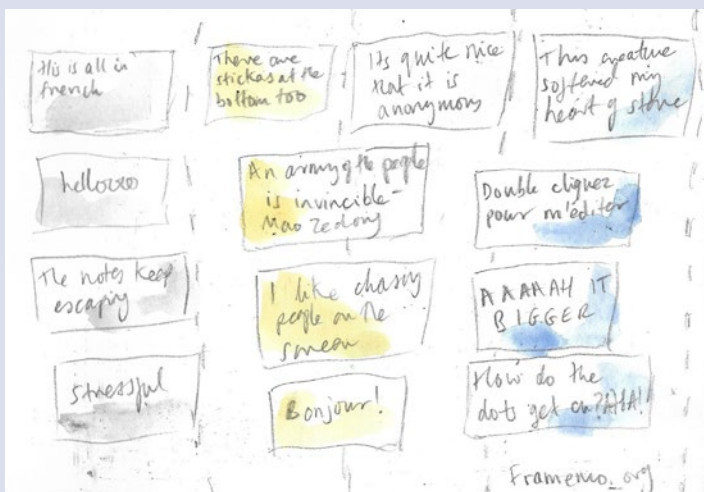 this is all in
french
There are
stickas at the
bottom too
Its quite nice
that it is
anonymous
This creature
softened my
heart of stone
helloooo
An army of the people
is invincible -
Mao Zedong
Double cliquez
pour m'éditer
The notes keep
escaping
I like chasing
people on the
screen
AAAAAH IT
BIGGER
stressful
Bonjour!
How do the
dots get on? AHA!
Framemo.org